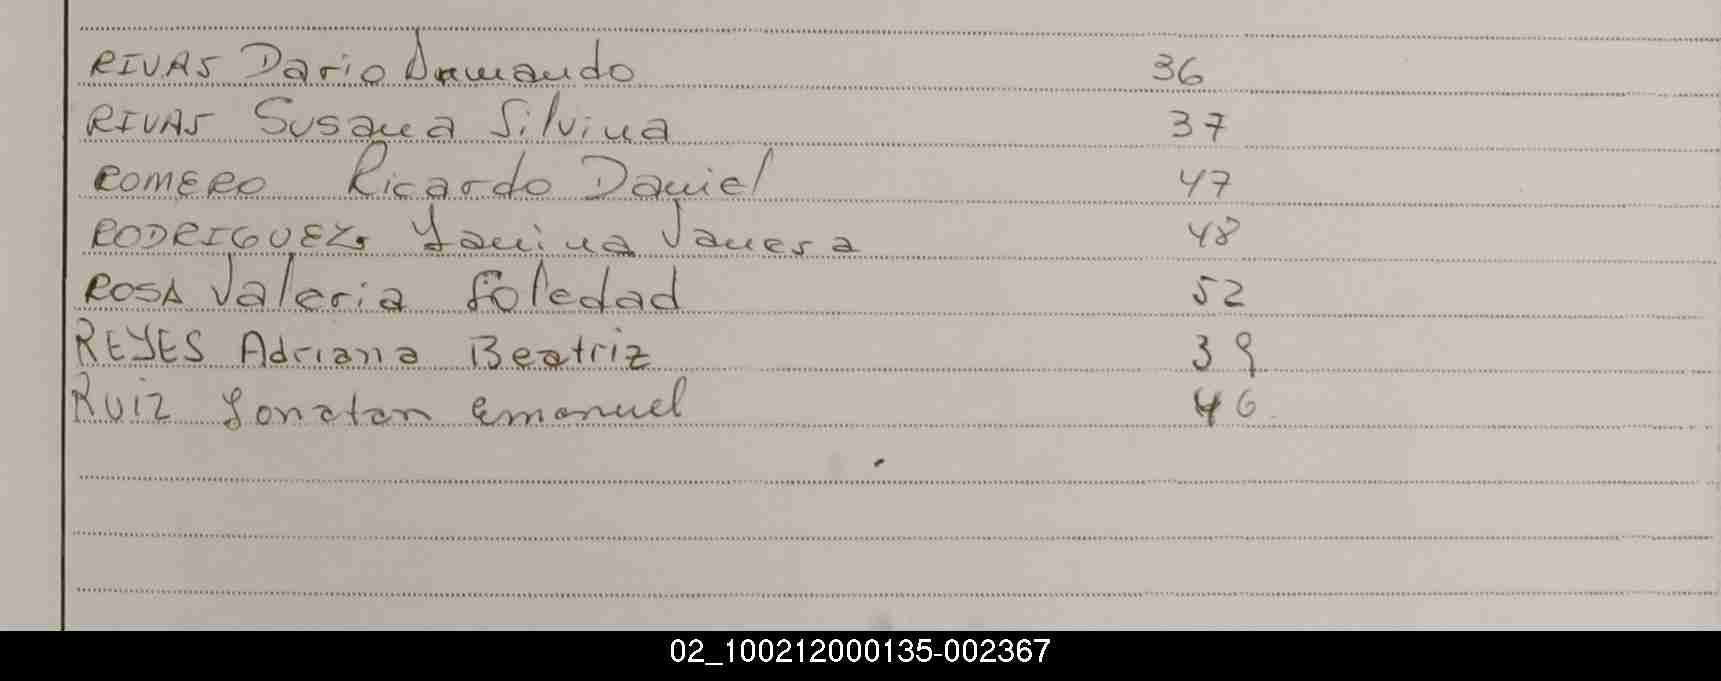 RIVAS Dario Armando 36
RIVAS Susana Silvina 37
ROMERO Ricardo Daniel 47
RODRIGUEZ, Yanina Vanesa 48
ROSA Valeria Soledad 52
REYES Adriana Beatriz 39
RUIZ Jonatan Emanuel 46
02_100212000135-002367